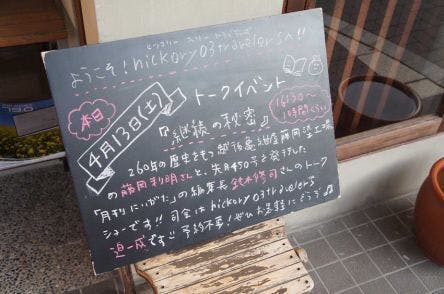 ひっこりー スリー とらべらーず
ようこそ!hickory03travelersへ!!
本日
4月13日(土)
トークイベント
『継続の秘密』
16:30〜
1時間くらい
260年の歴史をもつ越後亀紺屋藤岡染工場
の藤岡利明さんと、先月450号を発行した
「月刊にいがた」の編集長 鈴木修司さんのトーク
ショーです!! 司会はhickory03travelers
迫一成です!! 予約不要!ぜひお気軽にどうぞ♫